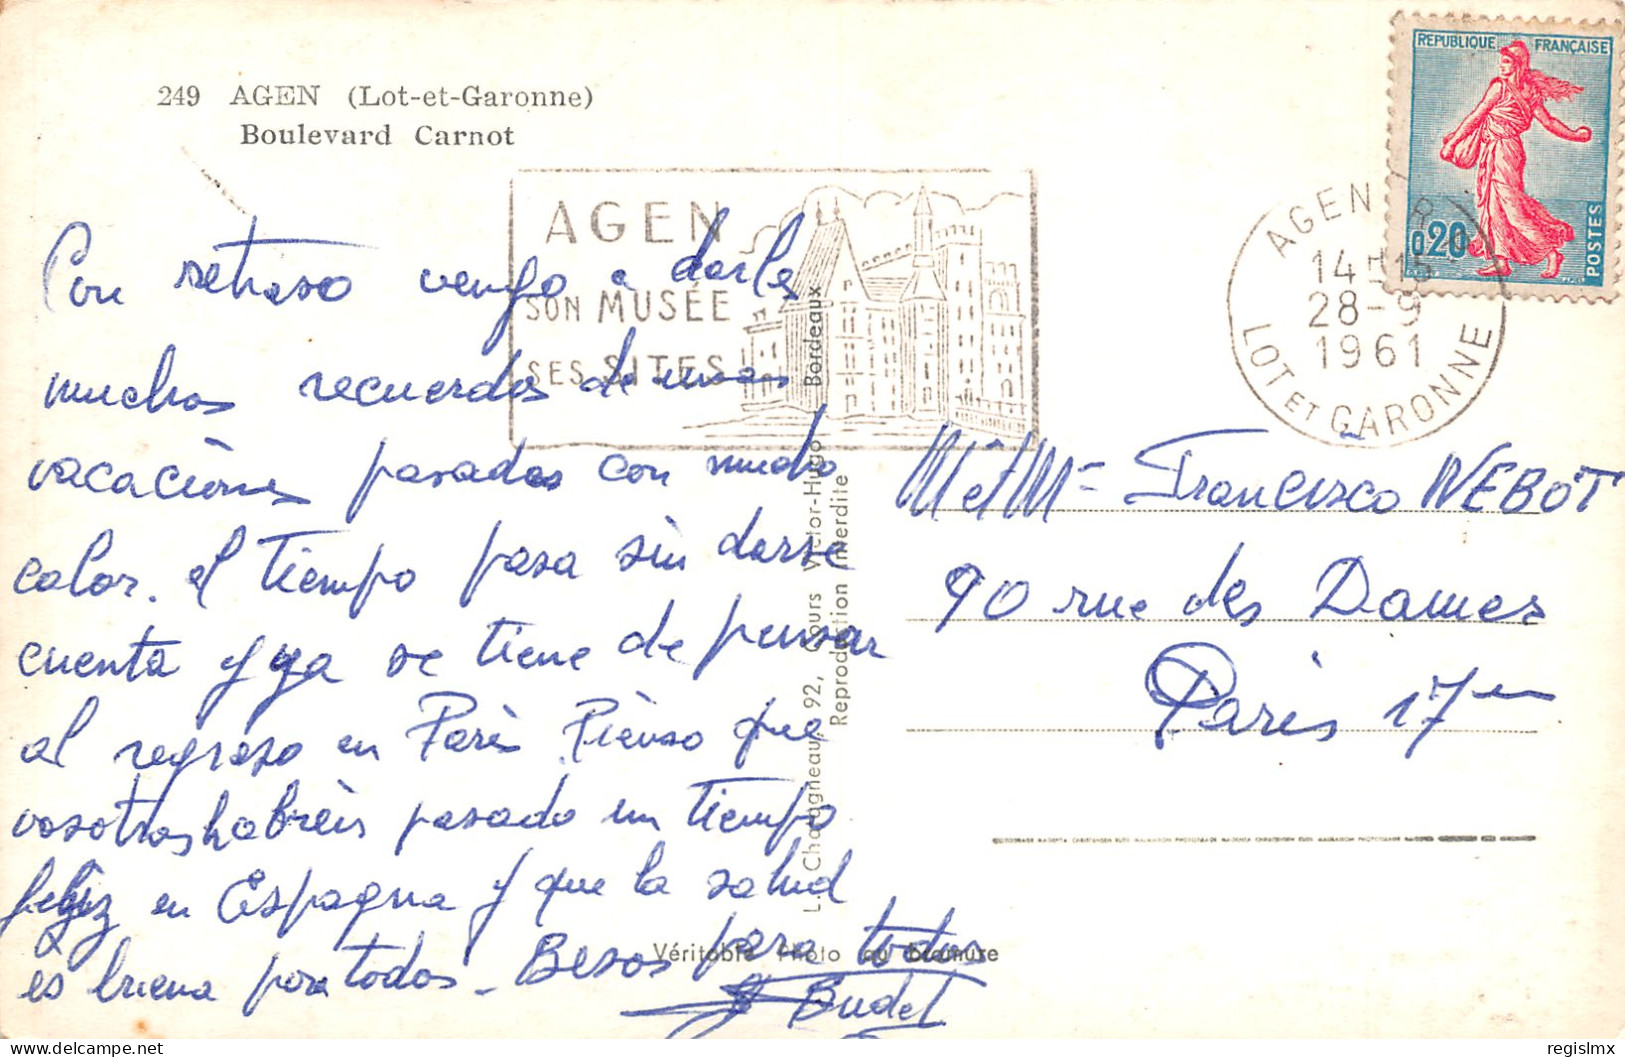 249 AGEN (Lot-et-Garonne)
Boulevard Carnot
AGEN
SON MUSÉE
SES SITES
REPUBLIQUE FRANÇAISE
0,20
POSTES
AGEN
14 H 15
28-9
1961
LOT ET GARONNE
Con retraso vengo a darle
muchos recuerdos de unas
vacaciònes pasadas con mucho
calor. el tiempo pasa sin darse
cuenta y ya se tiene de pensar
al regreso en Parìs. Pienso que
vosotros habrèis pasado un tiempo
feliz en Espagna y que la salud
es buena por todos - Besos para todos
Budet
L. Chatagneau, 92, Cours Victor-Hugo, Bordeaux
Reproduction interdite
Véritable Photo au bromure
M et Mme Francisco NEBOT
90 rue des Dames
Paris 17em
regislmx
delcampe.net